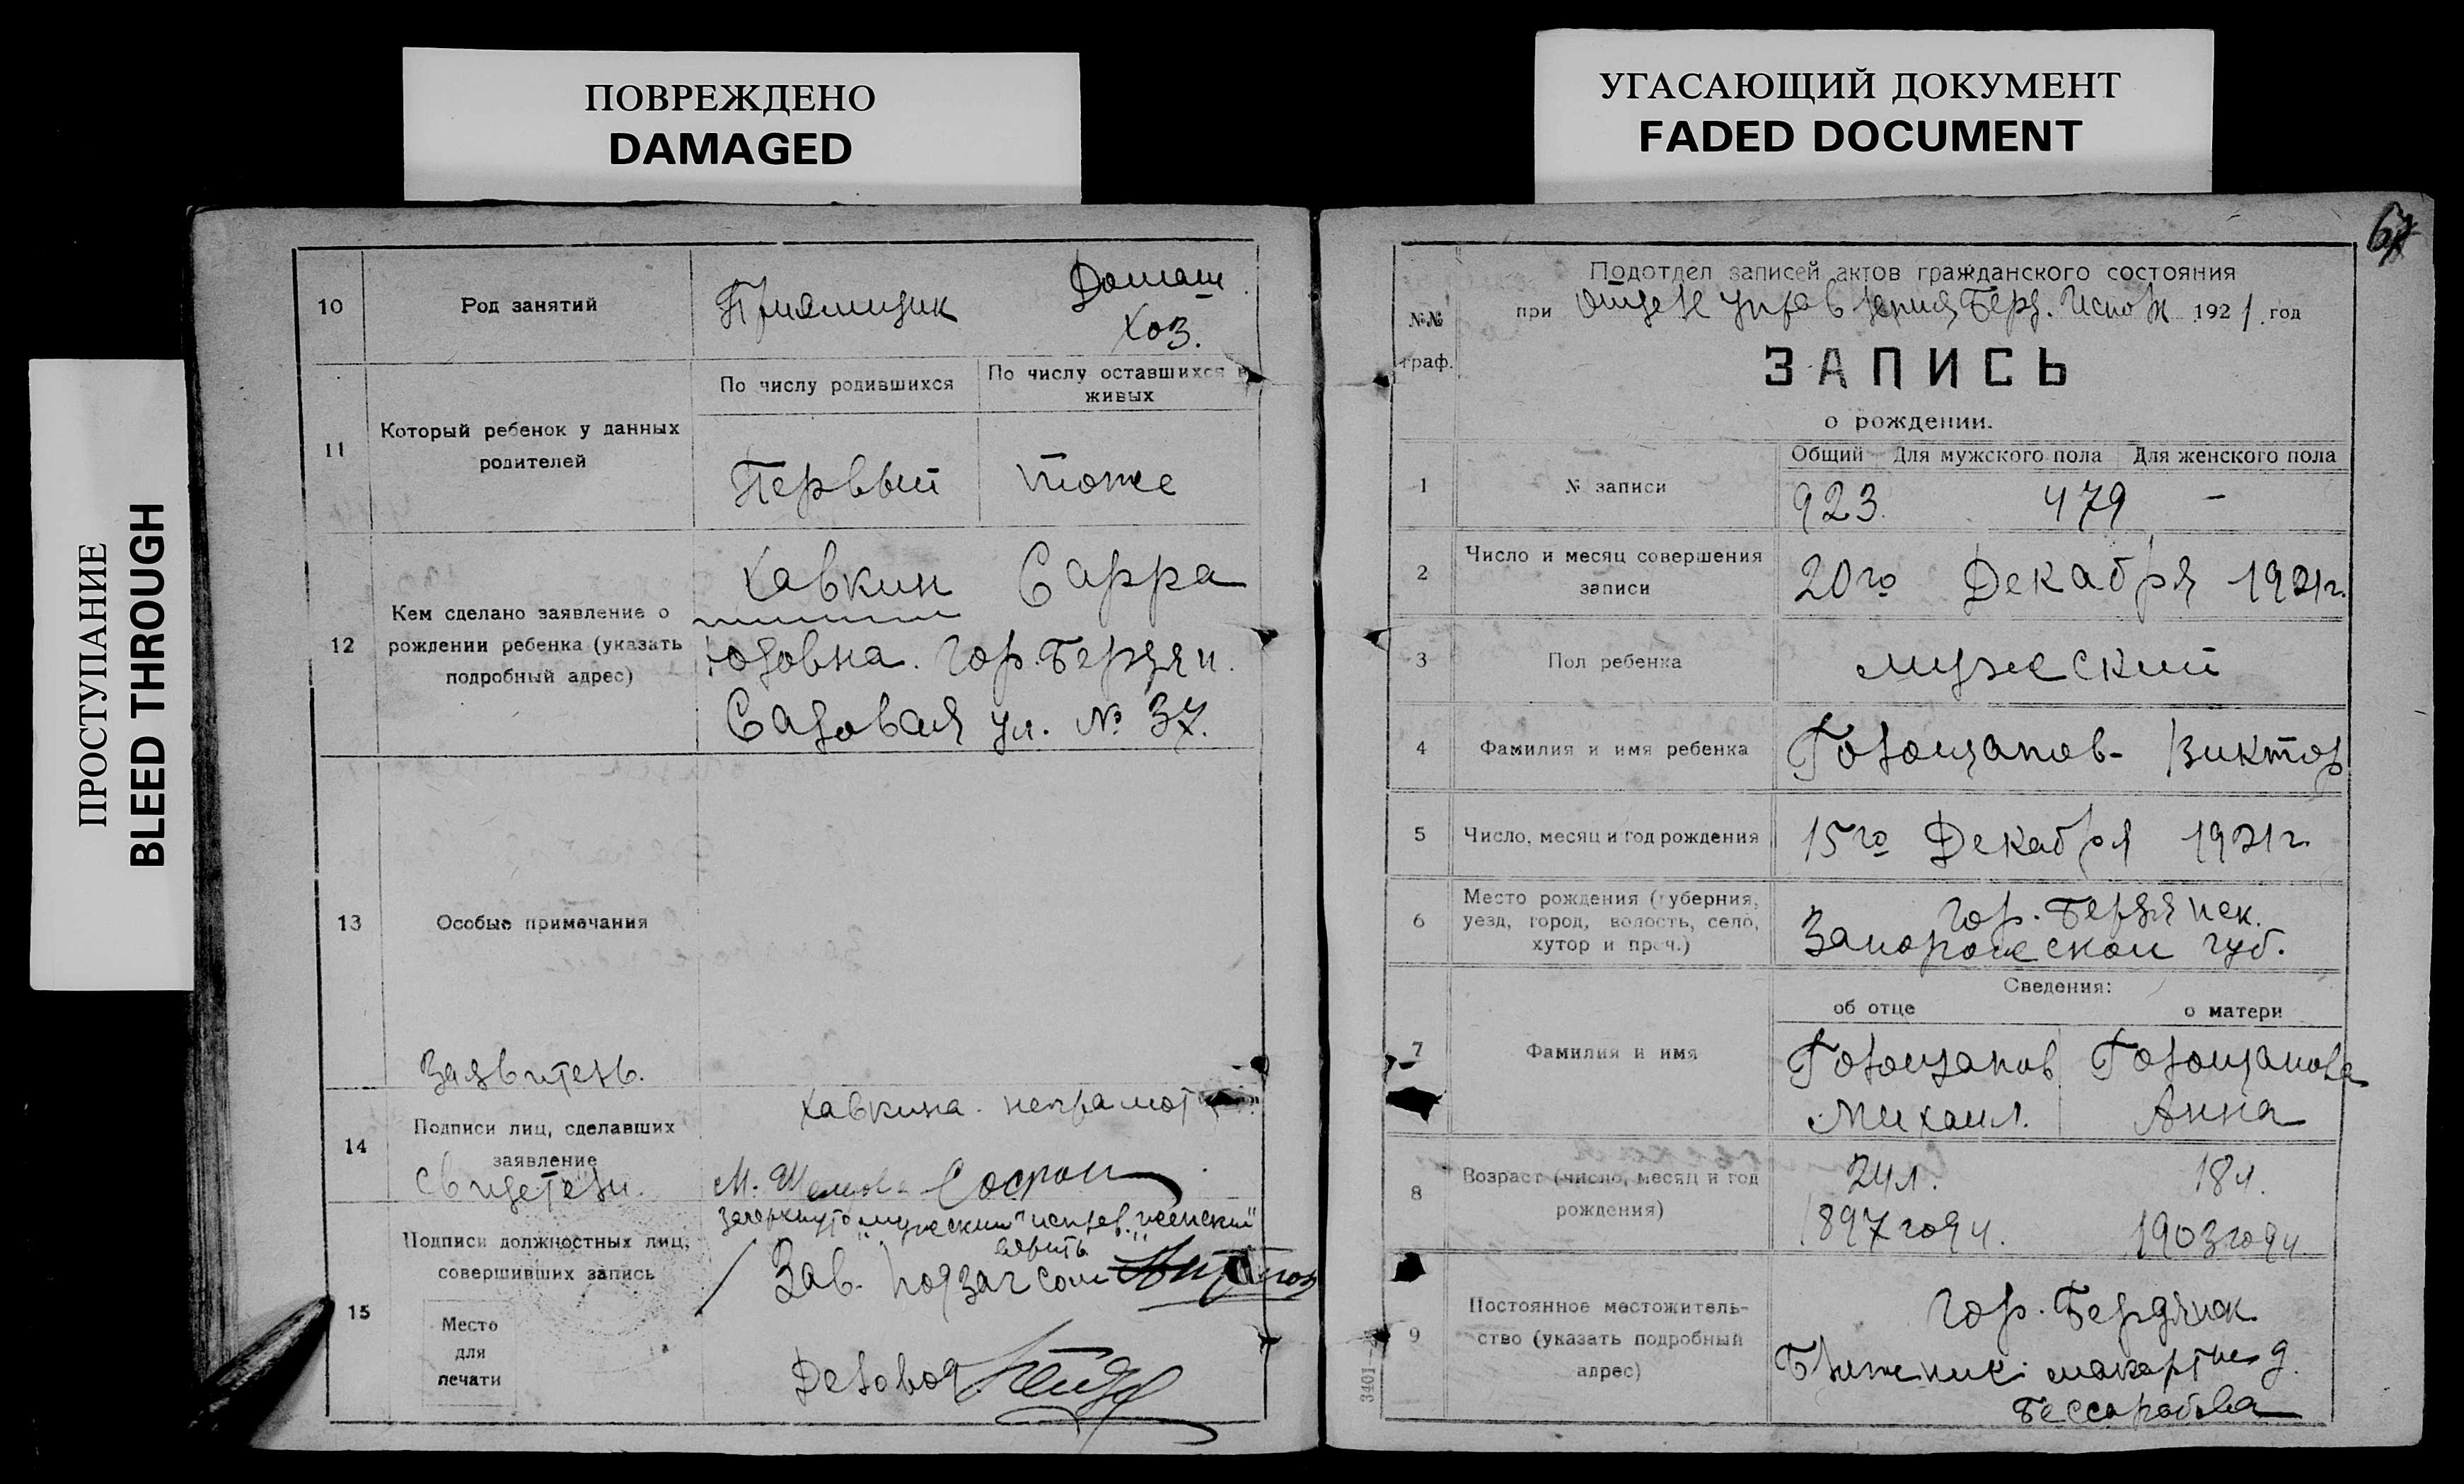 ПОВРЕЖДЕНО
DAMAGED
УГАСАЮЩИЙ ДОКУМЕНТ
FADED DOCUMENT
ПРОСТУПАНИЕ
BLEED THROUGH
10
Род занятий
Приемщик
Домаш.
Хоз.
11
Который ребенок у данных
родителей
По числу родившихся
По числу оставшихся в
живых
Первый
тоже
12
Кем сделано заявление о
рождении ребенка (указать
подробный адрес)
Хавкин Сарра
Юдовна. Гор. Бердян.
Садовая ул. № 37.
13
Особые примечания
Заявитель.
14
Подписи лиц, сделавших
заявление
Свидетели.
Хавкина неграмот
М.
зачеркнуто „мужеский"
верить
15
Подписи должностных лиц,
совершивших запись
Место
для
печати
Зав. подзагсом
Деловод
67
№№
граф.
Подотдел записей актов гражданского состояния
при Отделе Управления Берд. Исполк 1921 год
ЗАПИСЬ
о рождении.
1
№ записи
Общий Для мужского пола Для женского пола
923. 479 –
2
Число и месяц совершения
записи
20го Декабря 1921г.
3
Пол ребенка
мужеский
4
Фамилия и имя ребенка
Голощапов- Виктор
5
Число, месяц и год рождения
15го Декабря 1921г.
6
Место рождения (губерния,
уезд, город, волость, село,
хутор и проч.)
гор. Бердянск.
Запорожской губ.
Сведения:
об отце
о матери
7
Фамилия и имя
Голощапов
Михаил.
Голощапова
Анна
8
Возраст (число, месяц и год
рождения)
24л.
1897 году.
18л.
1903 году.
9
Постоянное местожитель-
ство (указать подробный
адрес)
гор. Бердянск
д.
Бессарабова
3401